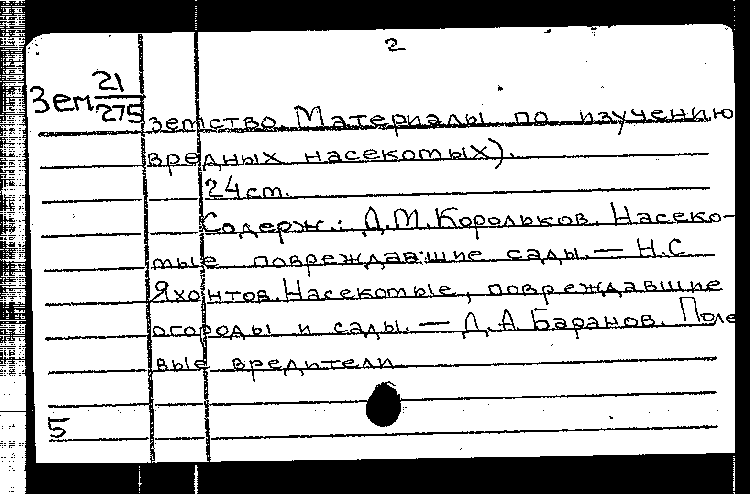 2
Зем 21
275
земство. Материалы по изучению
вредных насекомых).
24 см.
Содерж.: Д.М. Корольков. Насеко-
мые повреждавшие сады. — Н.С
Яхонтов. Насекомые, повреждавшие
огороды и сады. — Д.А Баранов. Поле
вые вредители
5